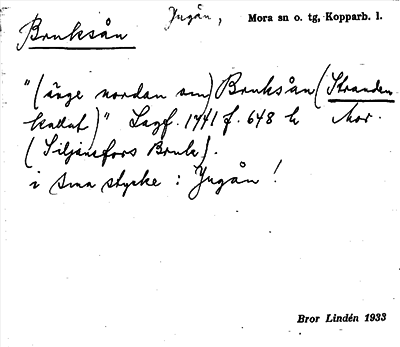 Bruksån Yngån, Mora sn o. tg, Kopparb. l.
"(änge nordan om) Bruksån (Strandän
kallat)" Lagf. 1741 f. 648 h Mor.
(Siljansfors Bruk).
i sina stycke: Yngån!
Bror Lindén 1933